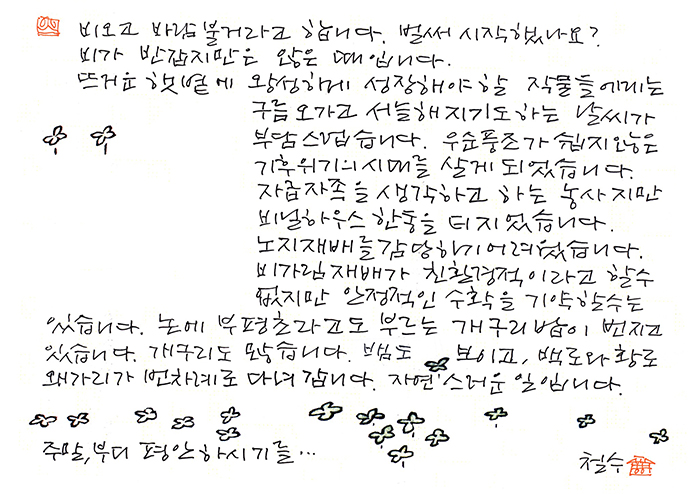 비오고 바람불거라고 합니다. 벌써 시작했나요?
비가 반갑지만은 않은 때입니다.
뜨거운 햇볕에 왕성하게 성장해야할 작물들에게는
구름 오가고 서늘해지기도하는 날씨가
부담스럽습니다. 우순풍조가 쉽지않은
기후위기의 시대를 살게 되었습니다.
자급자족을 생각하고 하는 농사지만
비닐하우스 한동을 더 지었습니다.
노지재배를 감당하기 어려웠습니다.
비가림재배가 친환경적이라고 할수
없지만 안정적인 수확을 기약할수는
있습니다. 논에 부평초라고도 부르는 개구리밥이 번지고
있습니다. 개구리도 많습니다. 뱀도 보이고, 백로와 황로
왜가리가 번차례로 다녀갑니다. 자연스러운 일입니다.
주말, 부디 평안하시기를…
철수